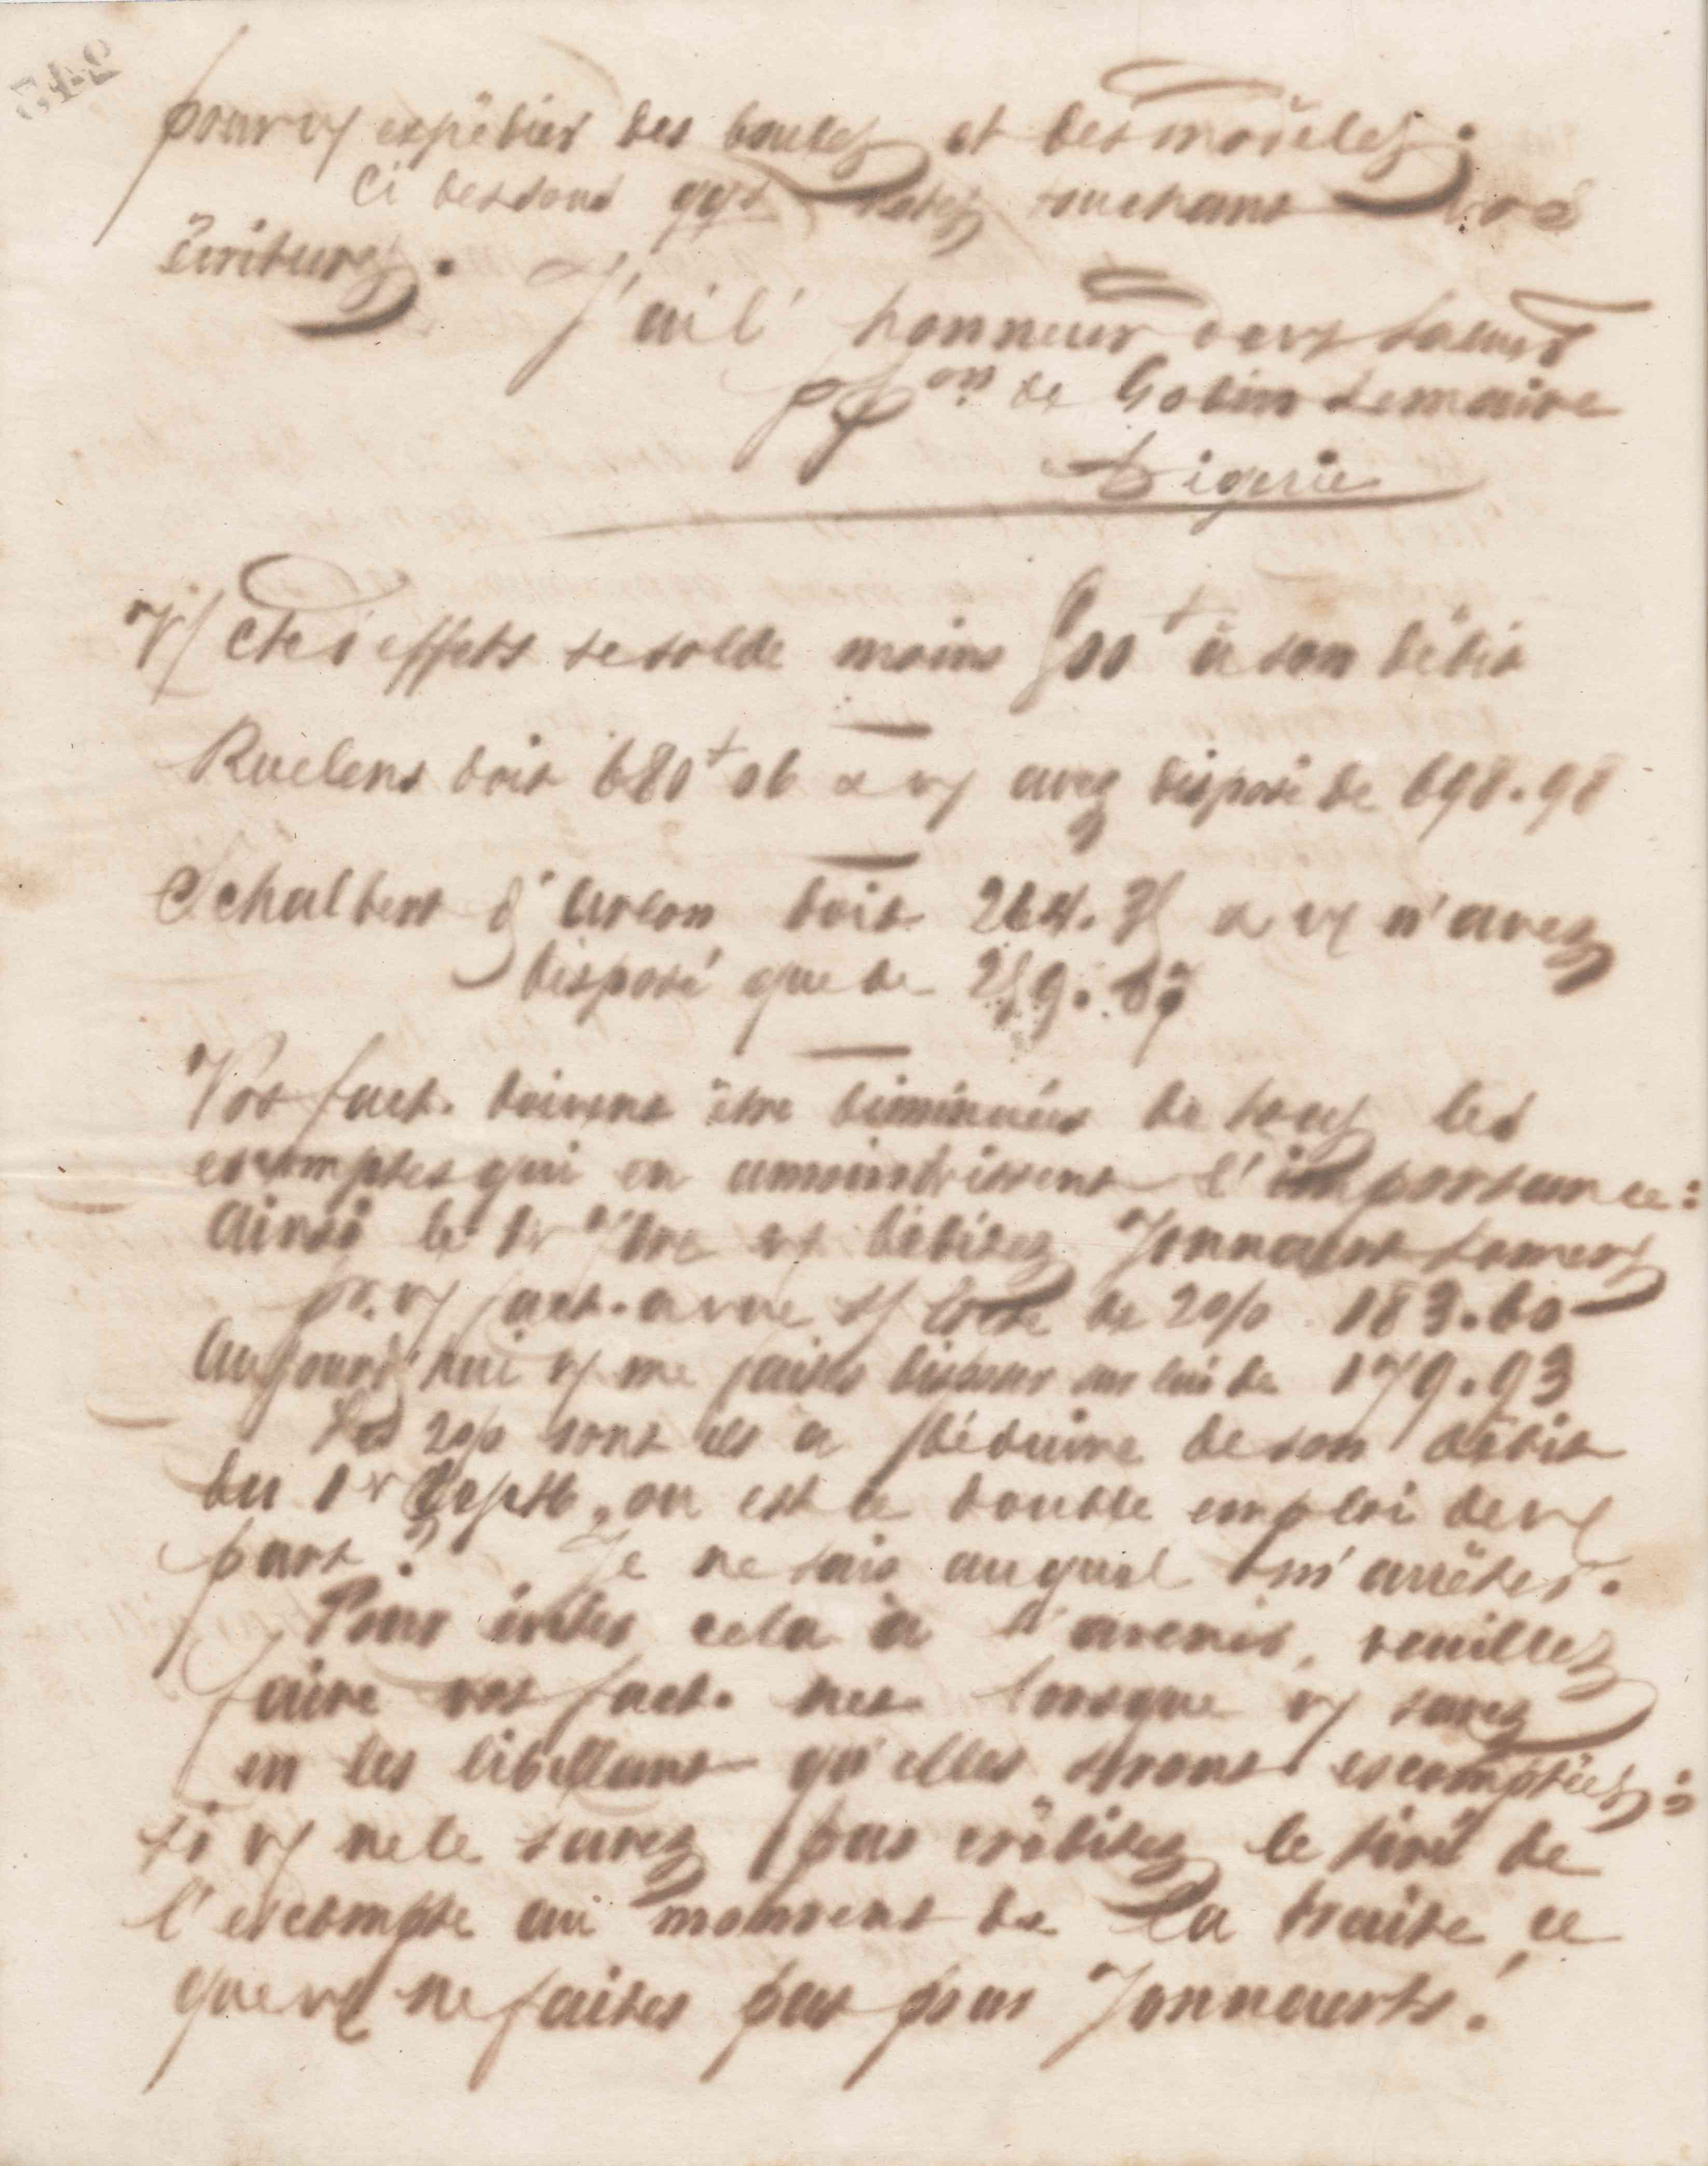 pour vs expédier des boulets et des modèles.
Ci dessous qqs notes touchant vos
écritures.
J'ai l'honneur de vs saluer
ppon de Godin Lemaire
Digerie
V/ Cte d'effets se solde moins 500 f à son débit
Ruelens doit 680 f 06 & vs avez disposé de 698.98
Schalbert d'Arlon doit 264.75 & vs n'avez
disposé que de 259.87
Vos fact. doivent être diminuées de tous les
escomptes qui en amoindrissent l'importance:
Ainsi le 1r 7bre vs débitez Jonnaert
pr. v/ fact. avue de 2 o/o 183.60
Aujourd'hui vs me faites disposer sur lui de 179.93
Les 2 o/o sont ils à déduire de son débit
du 1r Septb, ou est ce double emploi de v/
part? Je ne sais auquel m'arrêter.
Pour éviter cela à l'avenir, veuillez
faire vos fact. net lorsque vs savez
en les libellant qu'elles seront escomptées:
si vs ne le savez pas créditez le tiré de
l'escompte au moment de la traite, ce
que vs ne faites pas pour Jonnaerts.